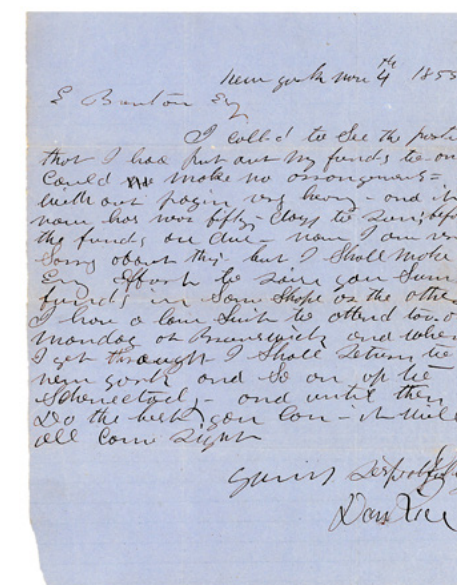 New york nov 4th 1855
E Banton Esq
I calld to See the
that I had put out my funds to
Could make no arrangement=
without payin very heavy - and it
now has over fifty days to run, bef
the funds are due - now I am
Sorry about this but I Shall make
Evry Effort to Send you Sum
funds in Some Shape or the other
I have a law Suit to attend to
monday at Brunswick and when
I get through I Shall Return to
New york and So on up to
Schenectady - and until then
Do the best you Can - it will
all Com Right
yours Respectfully
Dan Rice